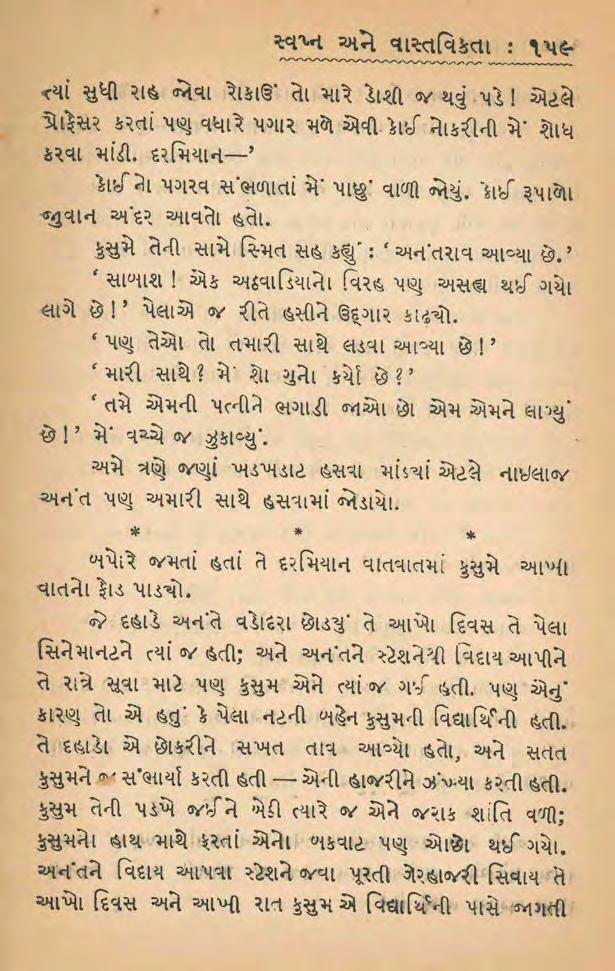 સ્વપ્ન અને વાસ્તવિકતા : ૧૫૯
ત્યાં સુધી રાહ જોવા રોકાઉં તો મારે ડોશી જ થવું પડે! એટલે
પ્રોફેસર કરતાં પણ વધારે પગાર મળે એવી કોઈ નોકરીની મેં શોધ
કરવા માંડી. દરમિયાન—’
કોઈનો પગરવ સંભળાતાં મેં પાછું વાળી જોયું. કોઈ રૂપાળો
જુવાન અંદર આવતો હતો.
કુસુમે તેની સામે સ્મિત સહ કહ્યું : ‘અનંતરાવ આવ્યા છે.’
‘સાબાશ! એક અઠવાડિયાનો વિરહ પણ અસહ્ય થઈ ગયો
લાગે છે!’ પેલાએ જ રીતે હસીને ઉદ્ગાર કાઢ્યો.
‘પણ તેઓ તો તમારી સાથે લડવા આવ્યા છે!’
‘મારી સાથે? મેં શો ગુનો કર્યો છે?’
‘તમે એમની પત્નીને ભગાડી જાઓ છો એમ એમને લાગ્યું
છે!’ મેં વચ્ચે જ ઝુકાવ્યું.
અમે ત્રણે જણાં ખડખડાટ હસવા માંડ્યાં એટલે નાઇલાજ
અનંત પણ અમારી સાથે હસવામાં જોડાયો.
* * *
બપોરે જમતાં હતાં તે દરમિયાન વાતવાતમાં કુસુમે આખી
વાતનો ફોડ પાડ્યો.
જે દહાડે અનંતે વડોદરા છોડ્યું તે આખો દિવસ તે પેલા
સિનેમાનટને ત્યાં જ હતી; અને અનંતને સ્ટેશનેથી વિદાય આપીને
તે રાત્રે સૂવા માટે પણ કુસુમ એને ત્યાં જ ગઈ હતી. પણ એનું
કારણ તો એ હતું કે પેલા નટની બહેન કુસુમની વિદ્યાર્થિની હતી.
તે દહાડો એ છોકરીને સખત તાવ આવ્યો હતો, અને સતત
કુસુમને જ સંભાર્યા કરતી હતી — એની હાજરીને ઝંખ્યા કરતી હતી.
કુસુમ તેની પડખે જઈને બેઠી ત્યારે જ એને જરાક શાંતિ વળી;
કુસુમનો હાથ માથે ફરતાં એનો બકવાટ પણ ઓછો થઈ ગયો.
અનંતને વિદાય આપવા સ્ટેશને જવા પૂરતી ગેરહાજરી સિવાય તે
આખો દિવસ અને આખી રાત કુસુમ એ વિદ્યાર્થિની પાસે જાગતી